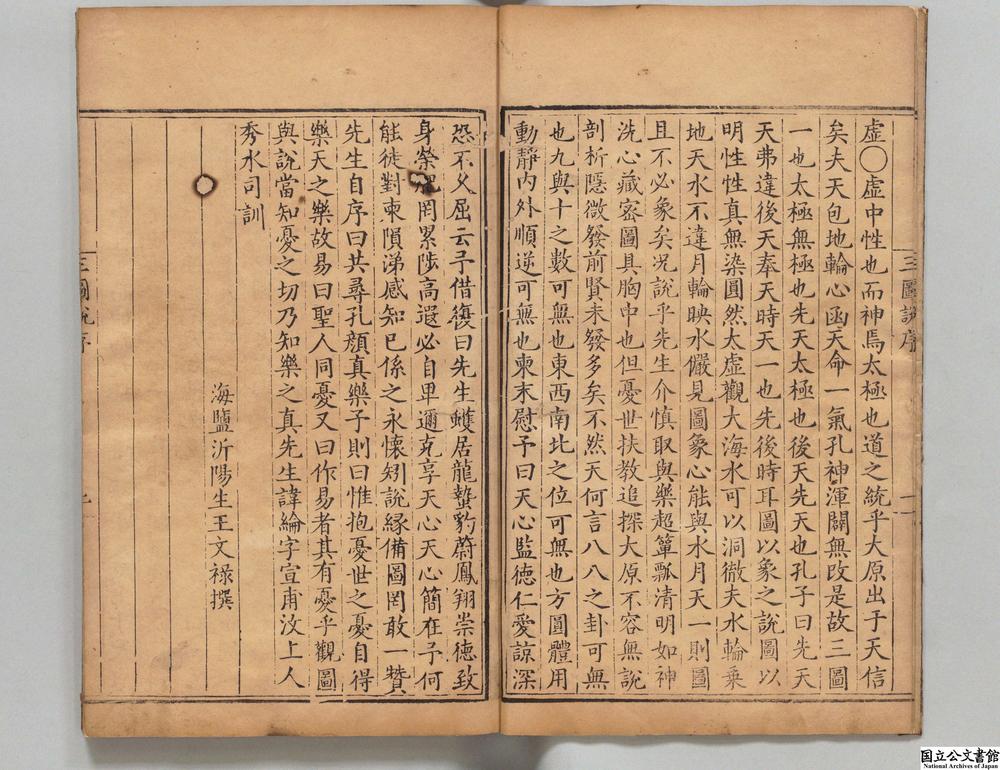 虛〇虛中性也而神焉太極也道之統乎大原出于天信
矣夫天包地輪心函天命一氣孔神渾闢無改是故三圖
一也太極無極也先天太極也後天先天也孔子曰先天
天弗違後天奉天時天一也先後時耳圖以象之說圖以
明性性真無染圓然太虛觀大海水可以洞徹夫水輪乗
地天水不違月輪映水儼見圖象心能與水月天一則圖
且不必象矣况說乎先生介慎取與樂超簞瓢清明如神
洗心藏密圖具胸中也但憂世扶教追探大原不容無說
剖析隱微發前賢未發多矣不然天何言八八之卦可無
也九與十之數可無也東西南北之位可無也方圓體用
動靜内外順逆可無也柬末慰予曰天心監德仁愛諒深
恐不乆屈云予借復曰先生蠖居龍蟄豹蔚鳳翔崇德致
身榮罔累陟高遐必自卑邇克享天心天心簡在予何
能徒對柬隕涕感知已係之永懷矧說緣備圖罔敢一贊
先生自序曰共尋孔顏真樂子則曰惟抱憂世之憂自得
樂天之樂故易曰聖人同憂又曰作易者其有憂乎觀圖
與說當知憂之切乃知樂之真先生諱綸字宣甫汶上人
秀水司訓
海鹽沂陽生王文祿撰
三圖說序
二
三圖說序
國立公文書館
National Archives of Japan